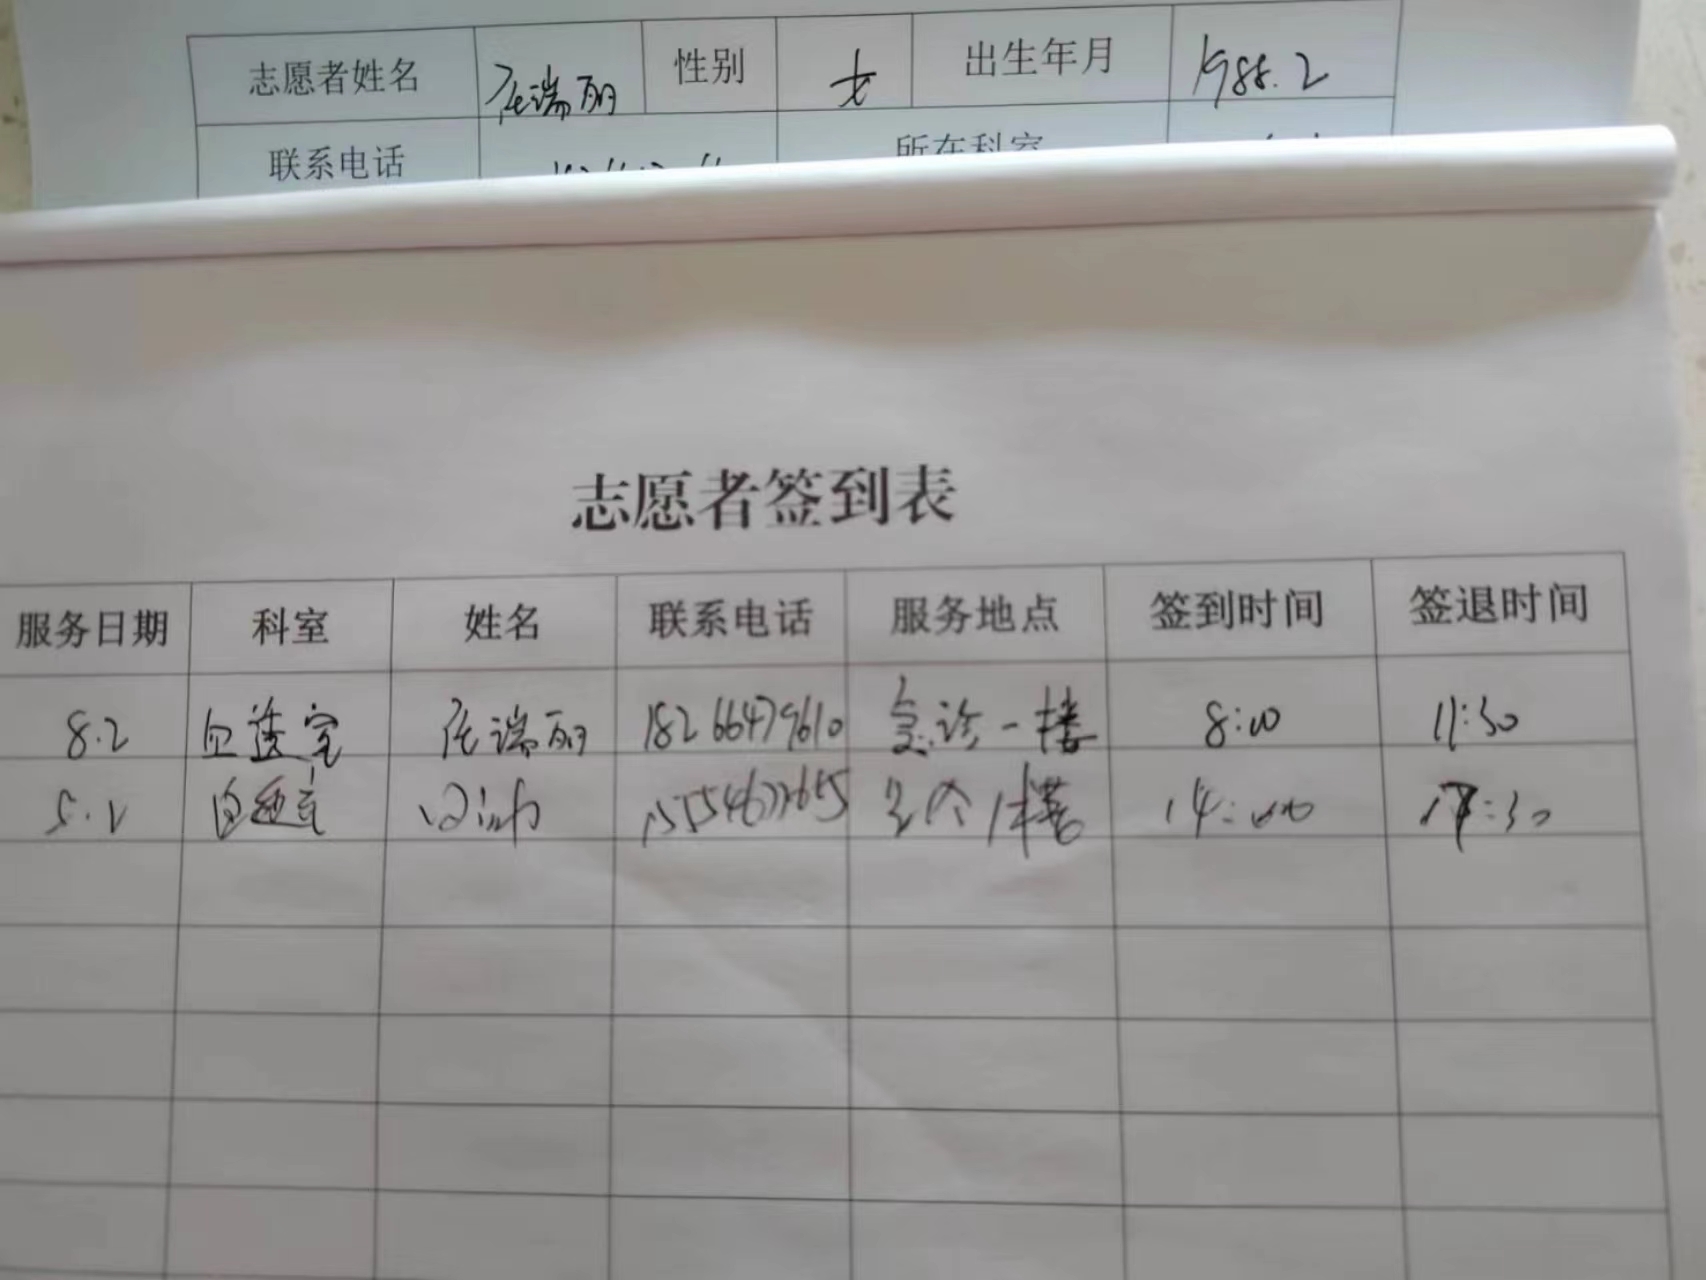 志愿者姓名 瑞丽 性别 女 出生年月 1988.2
联系电话 所在科室
志愿者签到表
服务日期 科室 姓名 联系电话 服务地点 签到时间 签退时间
8.2 血透室 瑞丽 18266479610 急诊一楼 8:00 11:30
血透室 楼 14:00 17:30